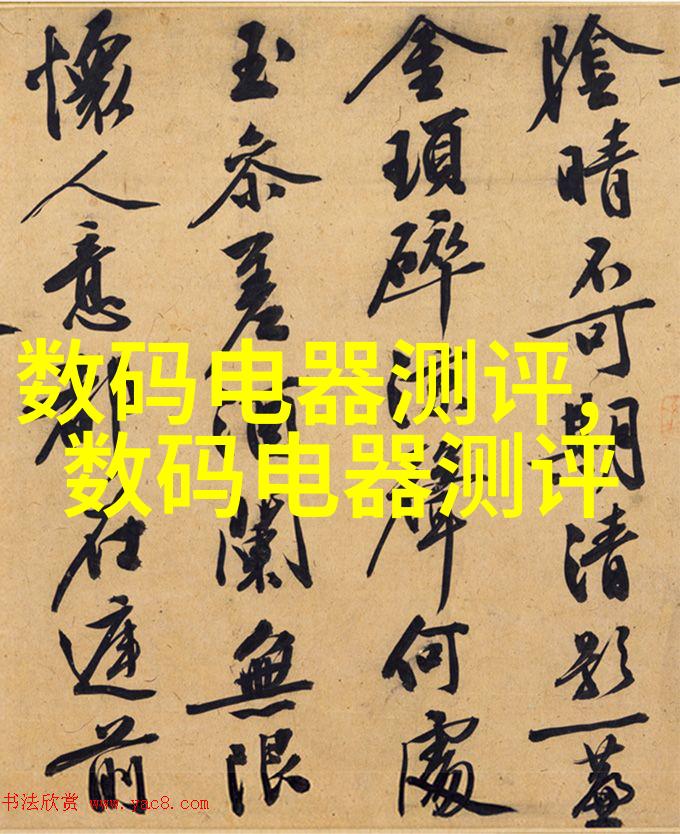 数码电器测评,
数码电器测评
陰晴不可期清影一
金瑣碎聲何處
玉参差酒闌無限
懷人意都在庭前
书法欣赏 www.yac8.com